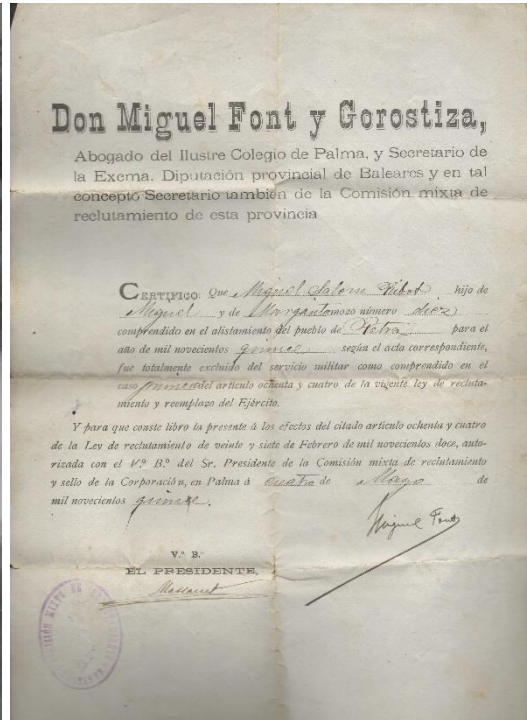 Don Miguel Font y Gorostiza,
Abogado del Ilustre Colegio de Palma, y Secretario de
la Excma. Diputación provincial de Baleares y en tal
concepto Secretario también de la Comisión mixta de
reclutamiento de esta provincia
CERTIFICO: Que Miguel Salom Ribot hijo de
Miguel y de Margarita mozo número diez
comprendido en el alistamiento del pueblo de Petra para el
año de mil novecientos quince según el acta correspondiente,
fue totalmente excluido del servicio militar como comprendido en el
caso primero del artículo ochenta y cuatro de la vigente ley de recluta-
miento y reemplazo del Ejército.
Y para que conste libro la presente á los efectos del citado artículo ochenta y cuatro
de la Ley de reclutamiento de veinte y siete de Febrero de mil novecientos doce, auto-
rizada con el V.º B.º del Sr. Presidente de la Comisión mixta de reclutamiento
y sello de la Corporación, en Palma á cuatro de Mayo de
mil novecientos quince.
Miguel Font
V.º B.º
EL PRESIDENTE,
Massanet
COMISIÓN MIXTA DE